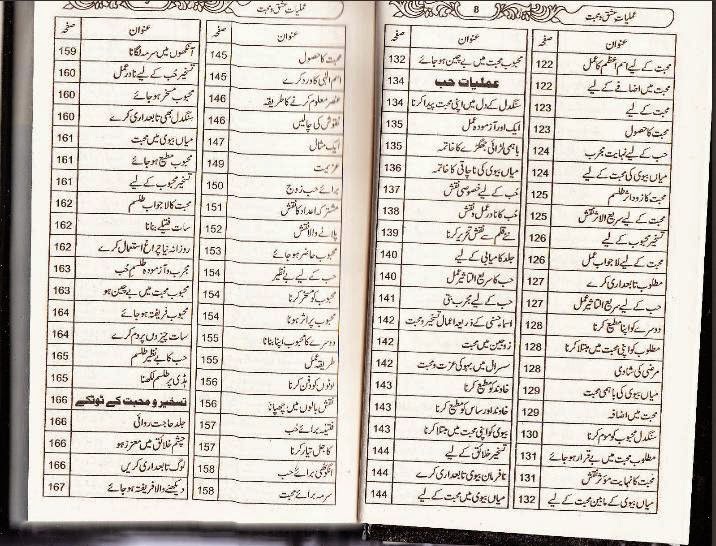 عملیات عشق و محبت
8
صفحہ عنوان
محبت کے لیے اسم اعظم کا عمل 122
محبت میں اضافے کے لیے 122
محبت کے لیے 123
محبت کا حصول 123
حب کے لیے نہایت مجرب 124
میاں بیوی کی محبت کے لیے 124
محبت کا زود اثر طلسم 125
محبت کے لیے سریع الاثر نقش 125
تسخیر محبوب کے لیے 126
محبت کے لیے لاجواب عمل 126
مطلوب تابعداری کرے 127
حب کے لیے سریع التاثیر عمل 127
دوسرے کو اپنا مطیع کرنا 128
مطلوب کو اپنی محبت میں مبتلا کرنا 128
مرضی کی شادی 128
میاں بیوی کی باہمی محبت 129
محبت میں اضافہ 129
سنگدل محبوب کو موم کرنا 130
مطلوب محبت میں بے قرار ہو جائے 131
محبت کا نہایت مؤثر نقش 131
میاں بیوی کے مابین محبت کے لیے 132
صفحہ عنوان
محبوب محبت میں بے چین ہو جائے 132
عملیات حب 134
سنگدل کے دل میں اپنی محبت پیدا کرنا 134
ایک اور آزمودہ عمل 135
باہمی لڑائی جھگڑے کا خاتمہ 135
میاں بیوی کی ناچاقی کا خاتمہ 136
حب کے لیے خصوصی نقش 137
حب کا نادر عمل و نقش 138
نئے قلم سے نقش تحریر کرنا 139
جلد کامیابی کے لیے 140
حب کا سریع التاثیر عمل 140
حب کے لیے مجرب بتی 141
اسماء حسنیٰ کے ذریعہ اعمال تسخیر و محبت 142
زوجین میں محبت 142
سسرال میں بہو کی عزت و محبت 142
خاوند کو مطیع کرنا 143
خاوند اور ساس کو مطیع کرنا 143
بیوی کو اپنی محبت میں مبتلا کرنا 143
تسخیر خلائق کے لیے 144
نافرمان بیوی تابعداری کرے 144
میاں بیوی میں محبت کے لیے 144
عملیات عشق و محبت
صفحہ عنوان
محبت کا حصول 145
اسم الٰہی کا ورد کرے 145
عنصر معلوم کرنے کا طریقہ 146
نقوش کی چالیں 146
ایک مثال 147
عزیمت 149
برائے حب زوج 150
مشترکہ اعداد کا نقش 151
پلانے والا نقش 152
محبوب حاضر ہو جائے 153
حب کے لیے بے نظیر 154
محبوب کو مسخر کرنا 154
محبوب پر اثر ہونا 154
دوسرے کا محبوب اپنا بنانا 155
طریقہ عمل 155
لونوں کو دفن کرنا 156
نقش بالوں میں چھپانا 156
فتیلہ برائے حب 157
کاجل تیار کرنا 157
انگوٹھی برائے حب 158
سرمہ برائے محبت 158
صفحہ عنوان
آنکھوں میں سرمہ لگانا 159
تسخیر حب کے لیے نادر عمل 160
محبوب مسخر ہو جائے 160
سنگدل بھی تابعداری کرے 160
میاں بیوی میں محبت 161
محبوب مطیع ہو جائے 161
تسخیر محبوب کے لیے 161
محبت کا لاجواب طلسم 162
سات فتیلے بنانا 162
روزانہ نیا چراغ استعمال کرے 162
مجرب و آزمودہ طلسم حب 163
محبوب محبت میں بے چین ہو 163
محبوب فریفتہ ہو جائے 164
سات چیزوں پر دم کرے 164
حب کا بے نظیر طلسم 165
ہڈی پر طلسم لکھنا 165
تسخیر و محبت کے ٹوٹکے 166
جلد حاجت روائی 166
چشم خلائق میں معزز ہو 166
لوگ تابعداری کریں 166
دیکھنے والا فریفتہ ہو جائے 167